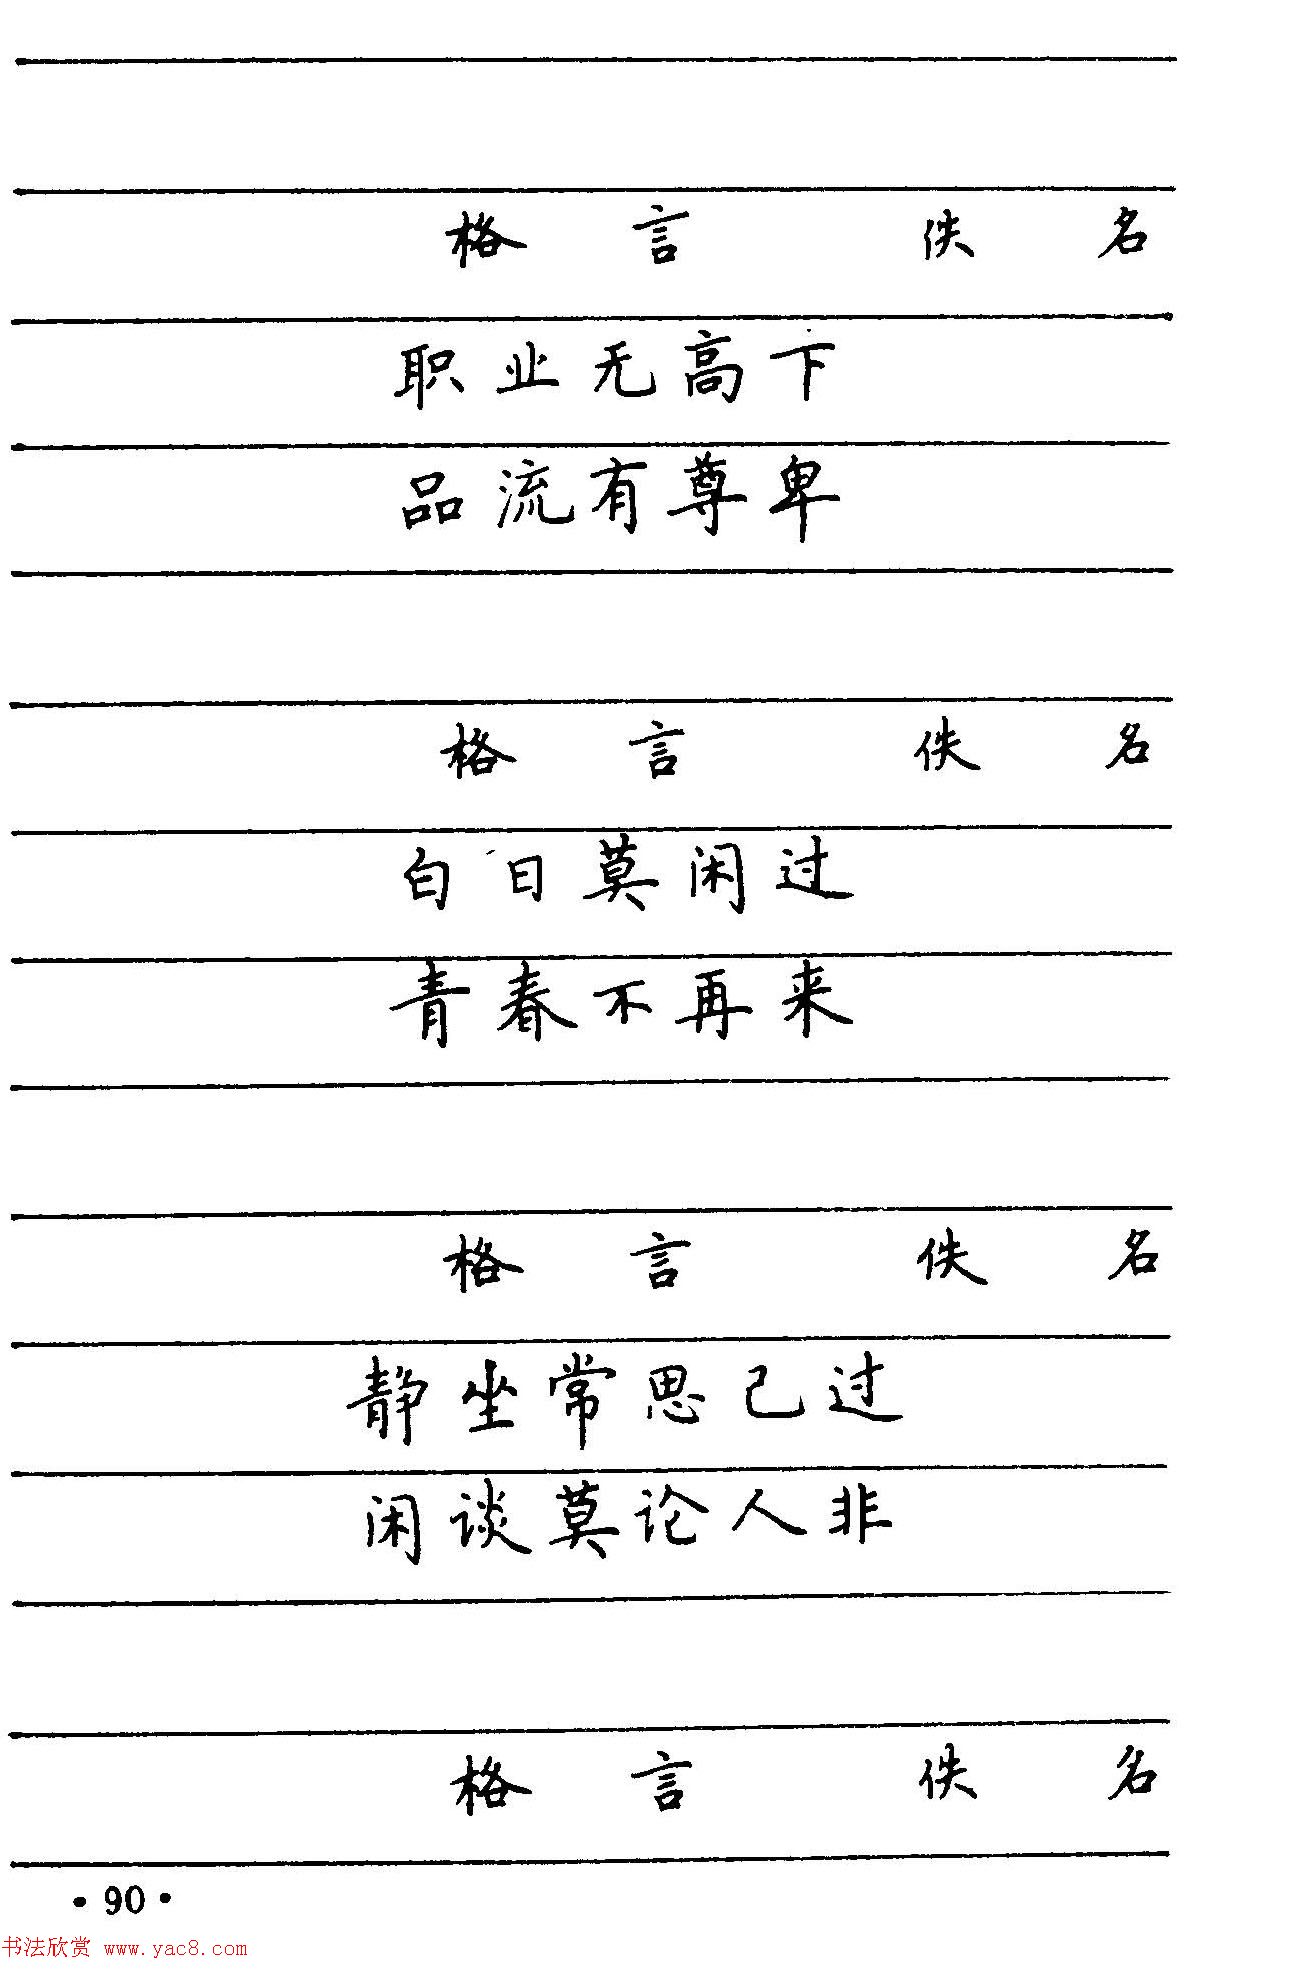 格 言 佚 名
职业无高下
品流有尊卑
格 言 佚 名
白日莫闲过
青春不再来
格 言 佚 名
静坐常思己过
闲谈莫论人非
格 言 佚 名
·90·
书法欣赏 www.yac8.com